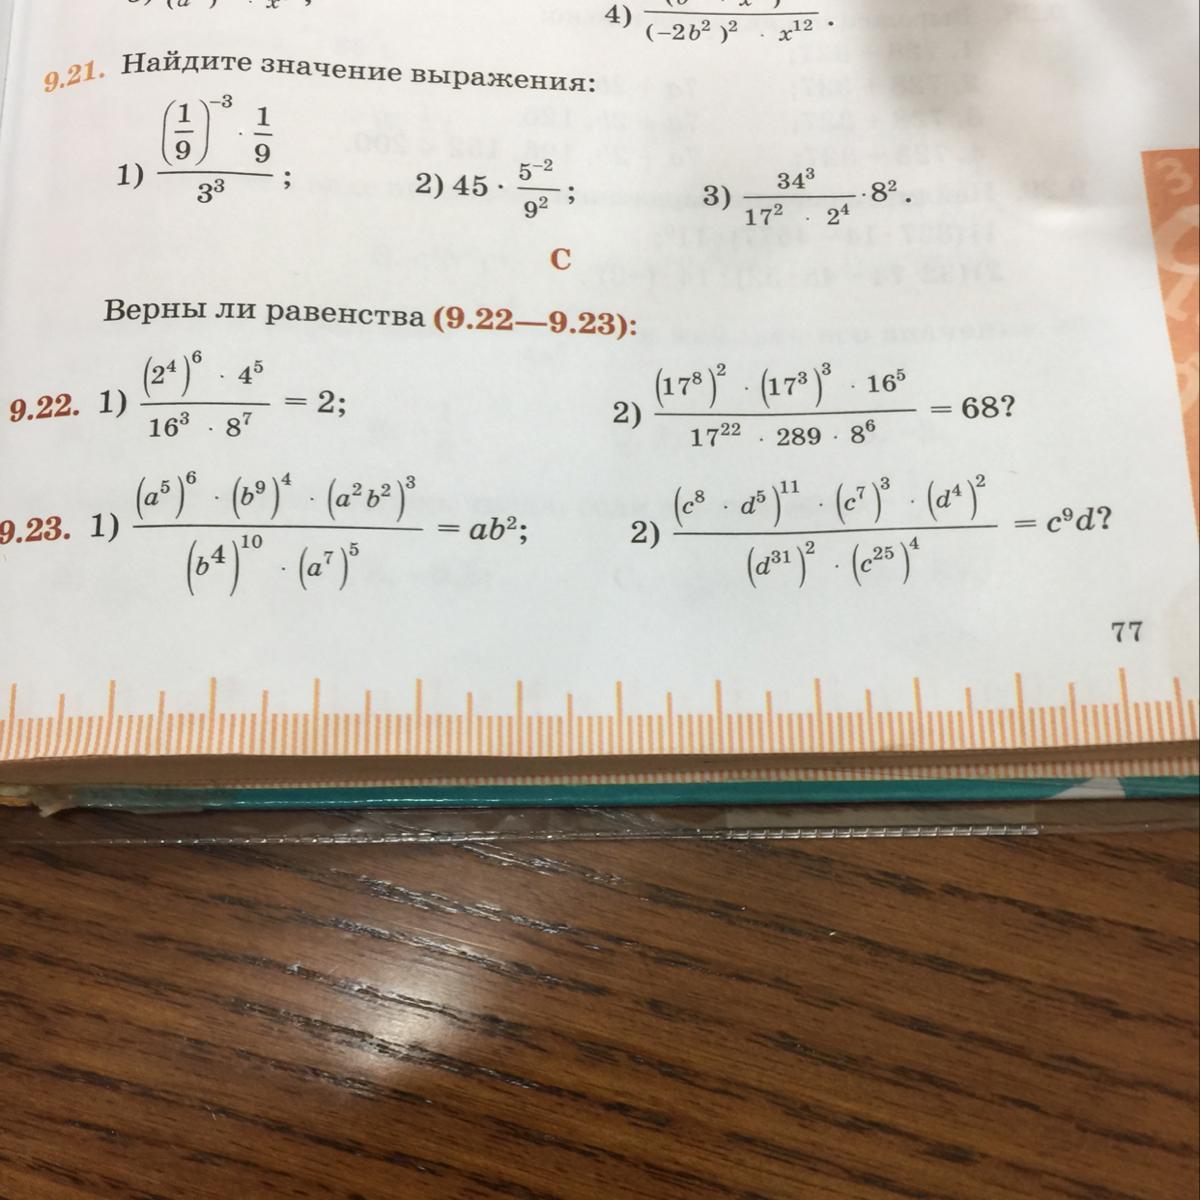 4) (−2b²)² · x¹²
9.21. Найдите значение выражения:
1) ((1/9)⁻³ · 1/9) / 3³; 2) 45 · 5⁻² / 9²; 3) 34³ / (17² · 2⁴) · 8².
C
Верны ли равенства (9.22—9.23):
9.22. 1) ((2⁴)⁶ · 4⁵) / (16³ · 8⁷) = 2; 2) ((17⁸)² · (17³)³ · 16⁵) / (17²² · 289 · 8⁶) = 68?
9.23. 1) ((a⁵)⁶ · (b⁹)⁴ · (a²b²)³) / ((b⁴)¹⁰ · (a⁷)⁵) = ab²; 2) ((c⁸ · d⁵)¹¹ · (c⁷)³ · (d⁴)²) / ((d³¹)² · (c²⁵)⁴) = c⁹d?
77